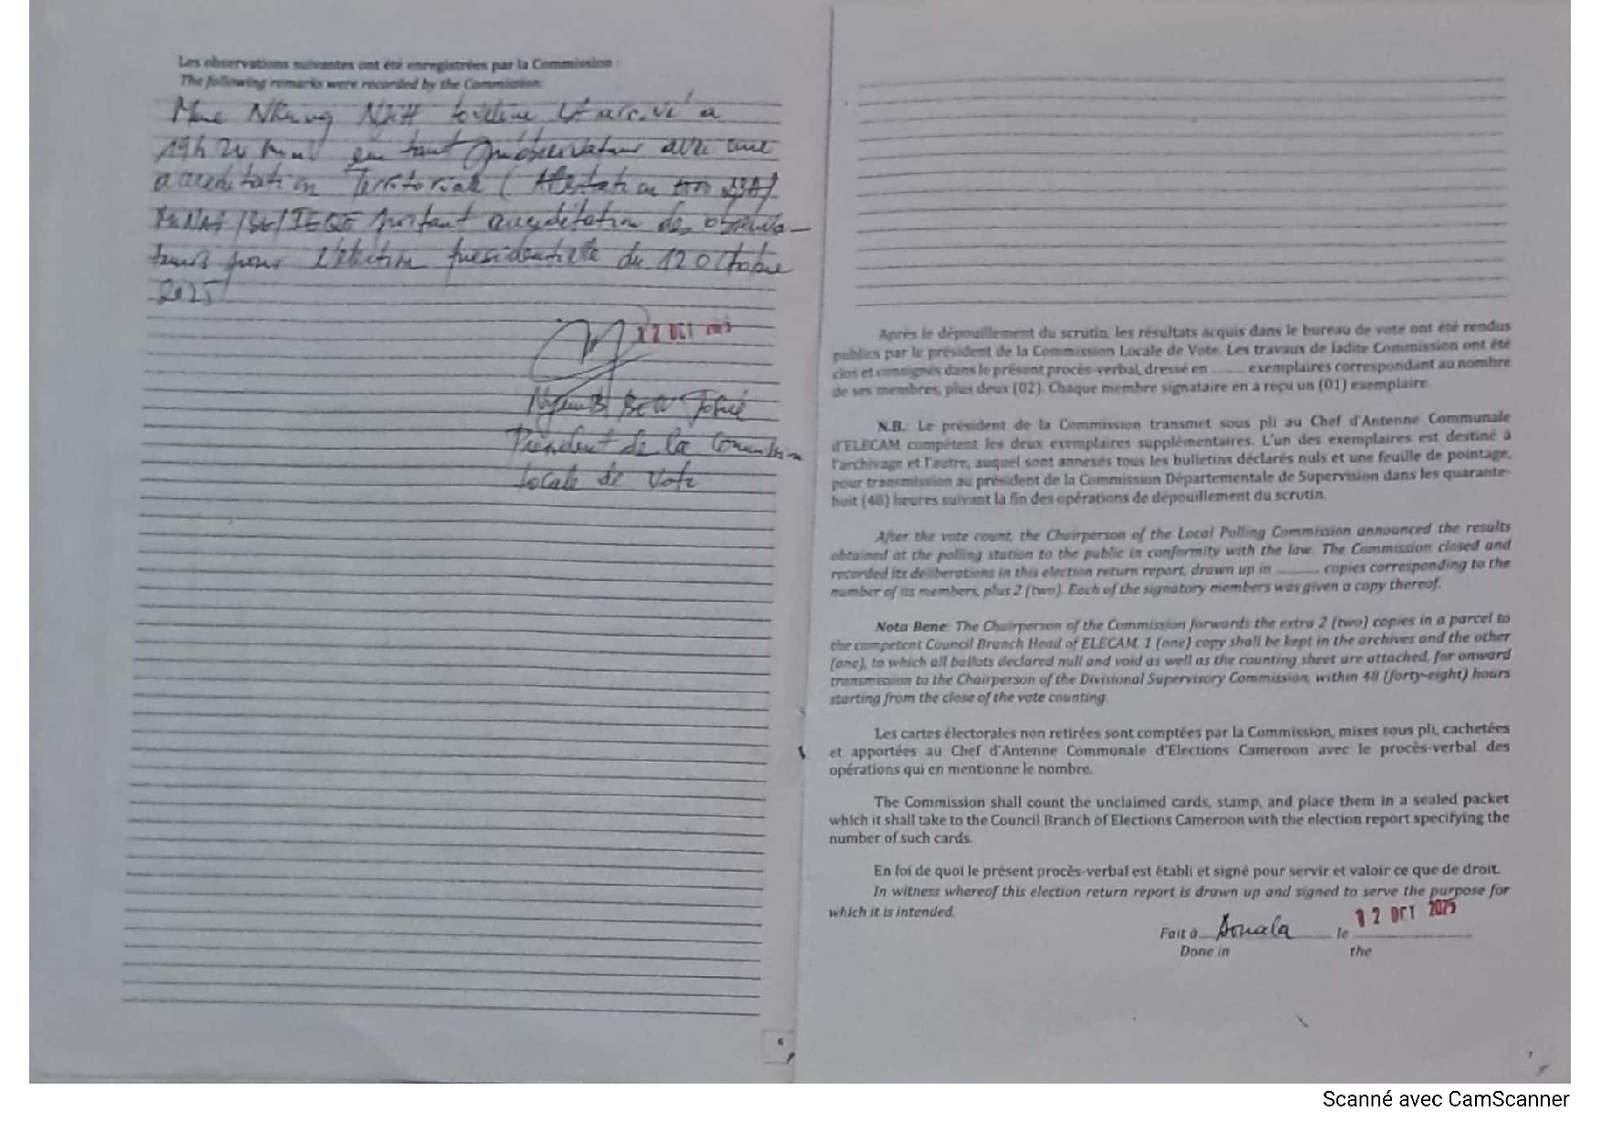 Les observations suivantes ont été enregistrées par la Commission :
The following remarks were recorded by the Commission:
Mme est arrivé à
19h 20 en tant qu'observateur avec une
accreditation Territoriale ( Attestation
portant accréditation des observa-
teurs pour l'élection présidentielle du 12 Octobre
2025
12 OCT
Président de la Commission
Locale de Vote
6
Après le dépouillement du scrutin, les résultats acquis dans le bureau de vote ont été rendus
publics par le président de la Commission Locale de Vote. Les travaux de ladite Commission ont été
clos et consignés dans le présent procès-verbal, dressé en ........ exemplaires correspondant au nombre
de ses membres, plus deux (02). Chaque membre signataire en a reçu un (01) exemplaire.
N.B.: Le président de la Commission transmet sous pli au Chef d'Antenne Communale
d'ELECAM compétent les deux exemplaires supplémentaires. L'un des exemplaires est destiné à
l'archivage et l'autre, auquel sont annexés tous les bulletins déclarés nuls et une feuille de pointage,
pour transmission au président de la Commission Départementale de Supervision dans les quarante-
huit (48) heures suivant la fin des opérations de dépouillement du scrutin.
After the vote count, the Chairperson of the Local Polling Commission announced the results
obtained at the polling station to the public in conformity with the law. The Commission closed and
recorded its deliberations in this election return report, drawn up in ........ copies corresponding to the
number of its members, plus 2 (two). Each of the signatory members was given a copy thereof.
Nota Bene: The Chairperson of the Commission forwards the extra 2 (two) copies in a parcel to
the competent Council Branch Head of ELECAM. 1 (one) copy shall be kept in the archives and the other
(one), to which all ballots declared null and void as well as the counting sheet are attached, for onward
transmission to the Chairperson of the Divisional Supervisory Commission, within 48 (forty-eight) hours
starting from the close of the vote counting.
Les cartes électorales non retirées sont comptées par la Commission, mises sous pli, cachetées
et apportées au Chef d'Antenne Communale d'Elections Cameroon avec le procès-verbal des
opérations qui en mentionne le nombre.
The Commission shall count the unclaimed cards, stamp, and place them in a sealed packet
which it shall take to the Council Branch of Elections Cameroon with the election report specifying the
number of such cards.
En foi de quoi le présent procès-verbal est établi et signé pour servir et valoir ce que de droit.
In witness whereof this election return report is drawn up and signed to serve the purpose for
which it is intended.
Fait à Douala le 12 OCT 2025
Done in the
7
Scanné avec CamScanner